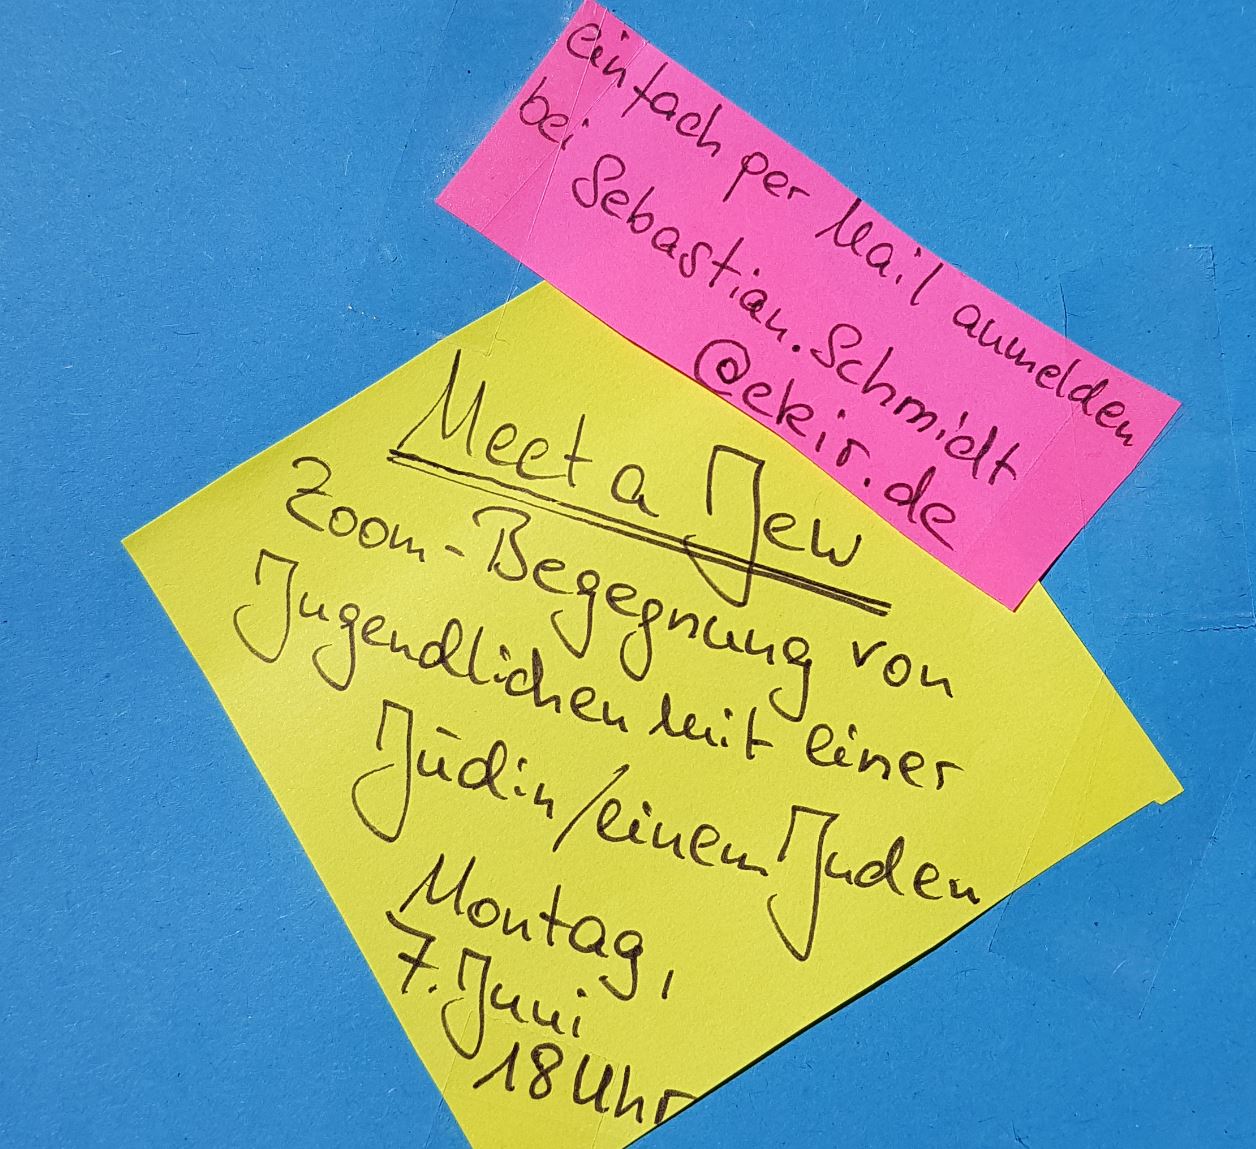 einfach per Mail anmelden
bei Sebastian.Schmidt
@ekir.de
Meet a Jew
Zoom-Begegnung von
Jugendlichen mit einer
Jüdin/einem Juden
Montag,
7. Juni
18 Uhr